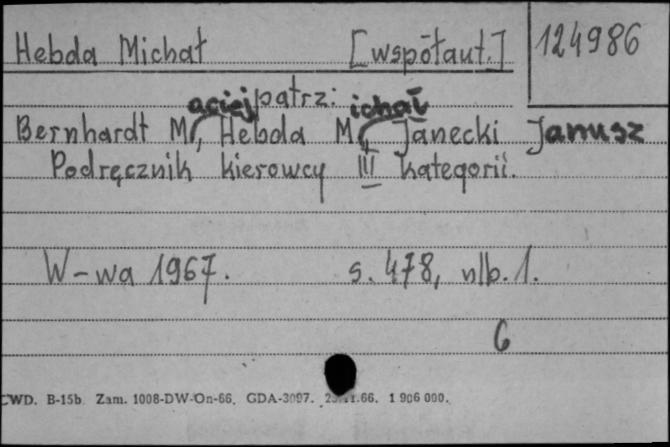 Hebda Michał [współaut.] 124986
patrz:
Bernhardt Maciej, Hebda Michał, Janecki Janusz
Podręcznik kierowcy III kategorii.
W-wa 1967. s. 478, nlb. 1.
6
CWD. B-15b. Zam. 1008-DW-On-66. GDA-3097. .66. 1 906 000.